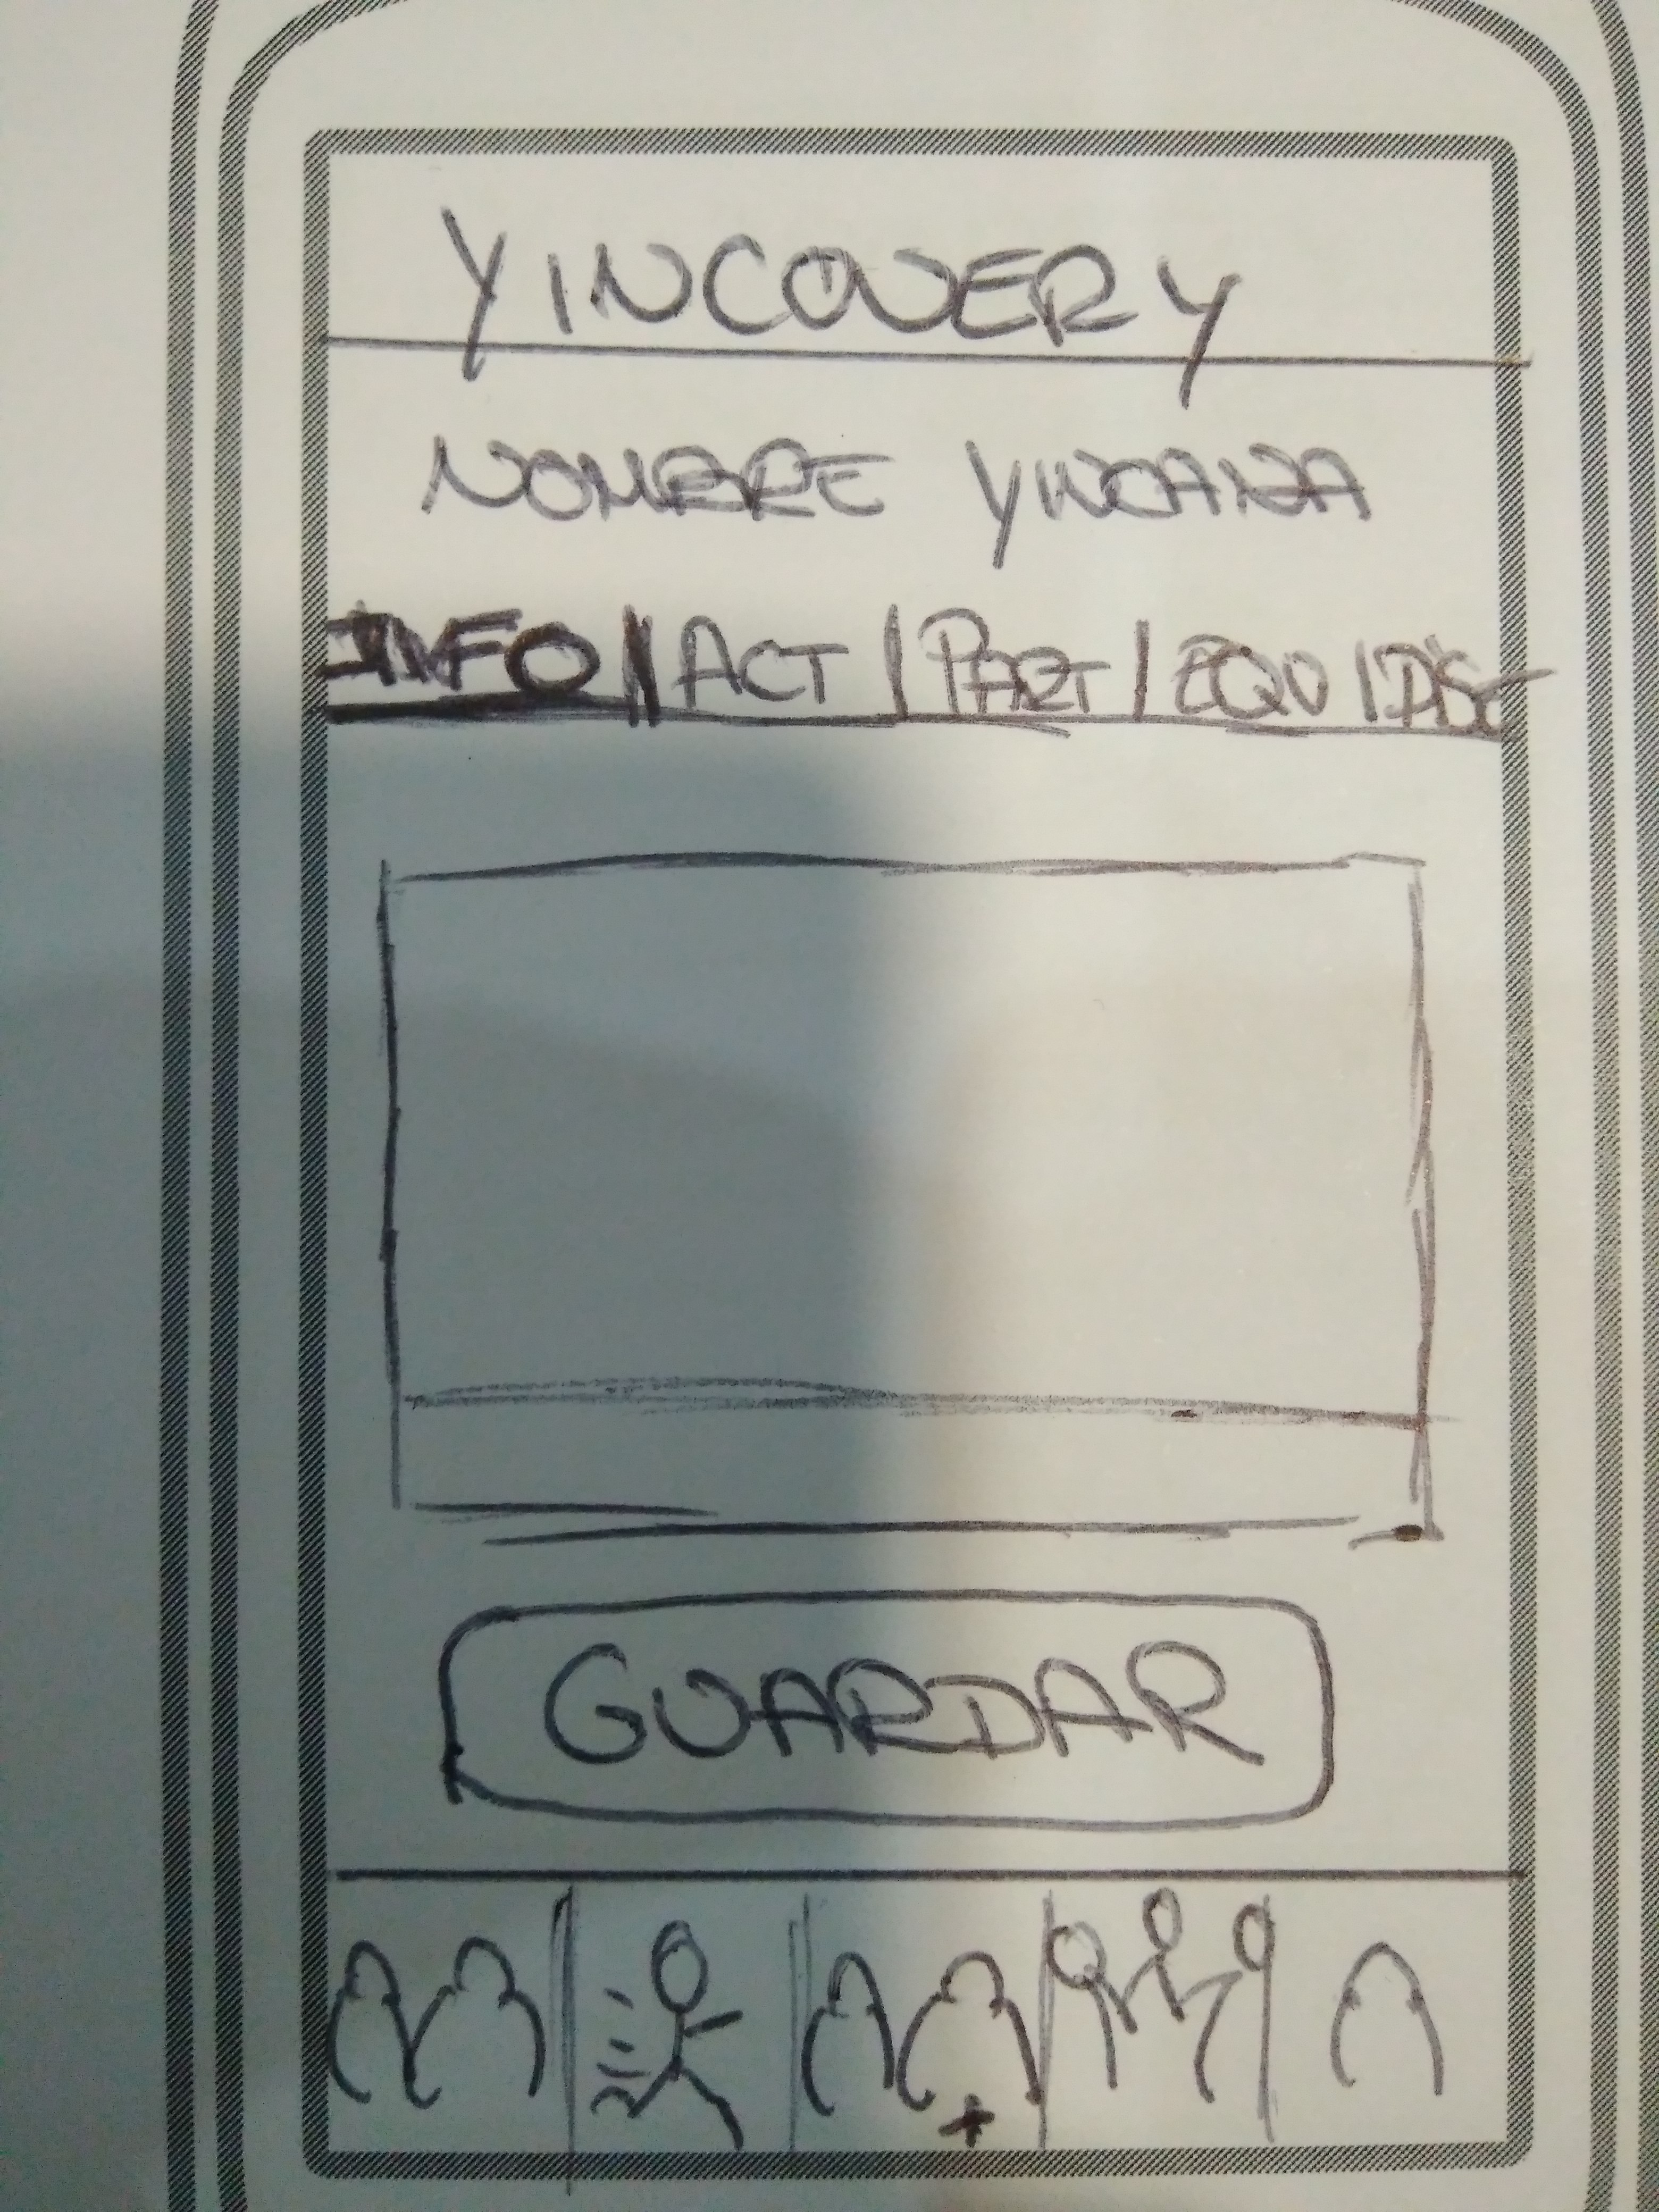 YINCOVERY
NOMBRE YINCANA
INFO | ACT | PART | EQU | DISC
GUARDAR
+